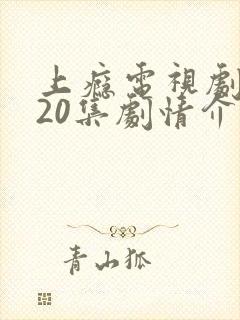 上癮電視劇
20集劇情介
青山狐